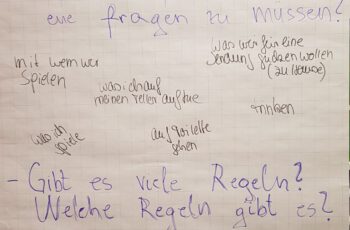 eure fragen zu müssen?
mit wem wir
spielen
was wir für eine
Sendung gucken wollen
(zu Hause)
was ich auf
meinen Teller auftue
trinken
was ich
spiele
auf Toilette
gehen
- Gibt es viele Regeln?
Welche Regeln gibt es?